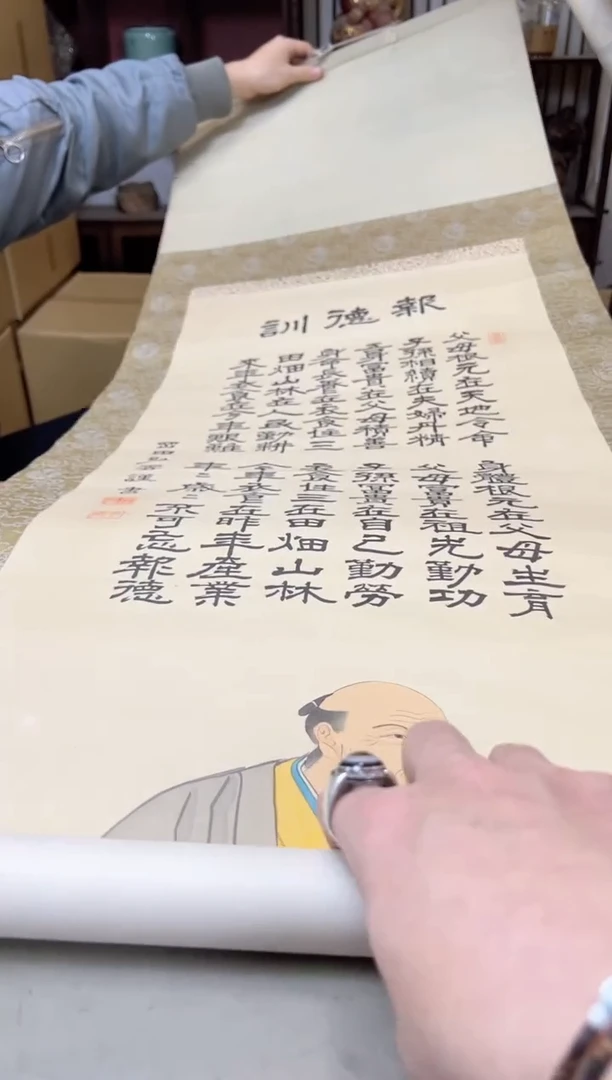 報徳訓
父母根元在天地令命 身體根元在父母生育
子孫相續在夫婦丹精 父母富貴在祖先勤功
吾身富貴在父母積善 子孫富貴在自己勤勞
身命長養在衣食住三 衣食住三在田畑山林
田畑山林在人民勤耕 今年衣食在昨年産業
來年衣食在今年艱難 年々歳々不可忘報徳
謹書